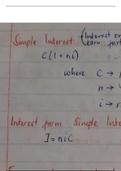 Simple Interest (Interest
earn
C(1 + ni)
where C →
n →
i →
Interest form Simple
I = niC